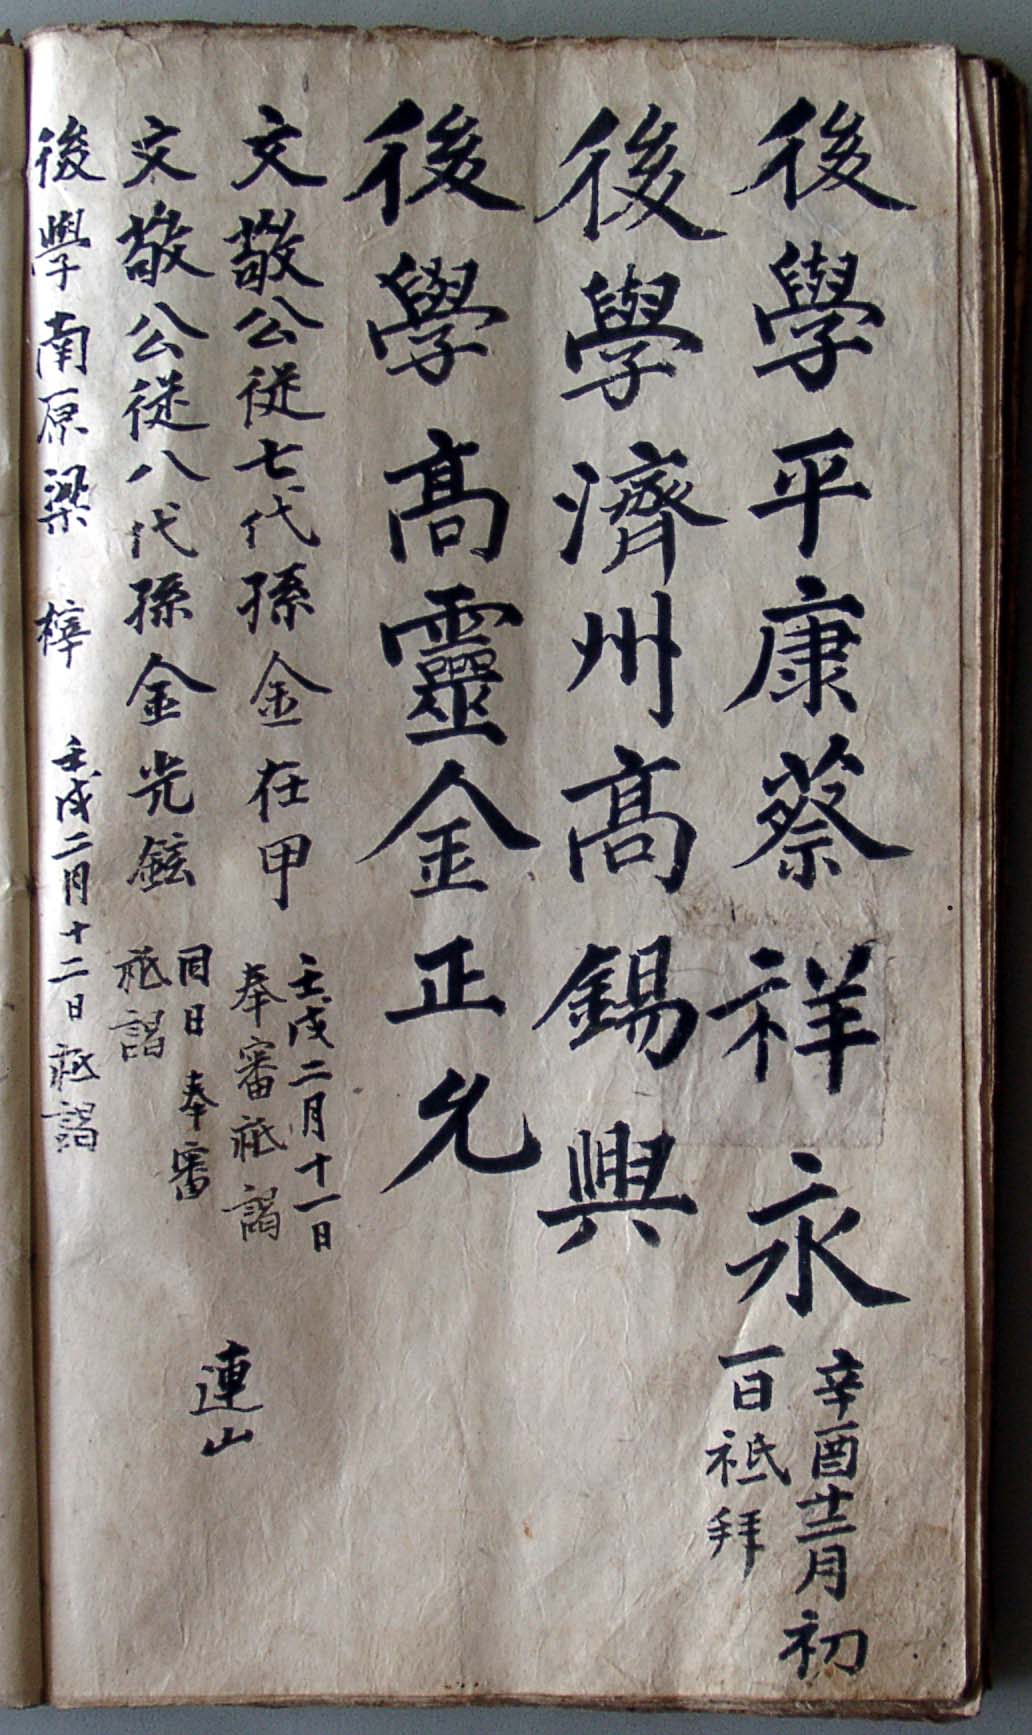 後學平康蔡祥永
辛酉十二月初
一日祗拜
後學濟州高錫興
後學高靈金正允
文敬公從七代孫金在甲
壬戌二月十一日
奉審祗謁
文敬公從八代孫金光鉉
同日 奉審
祗謁
連山
後學南原梁 梓 壬戌二月十二日祗謁